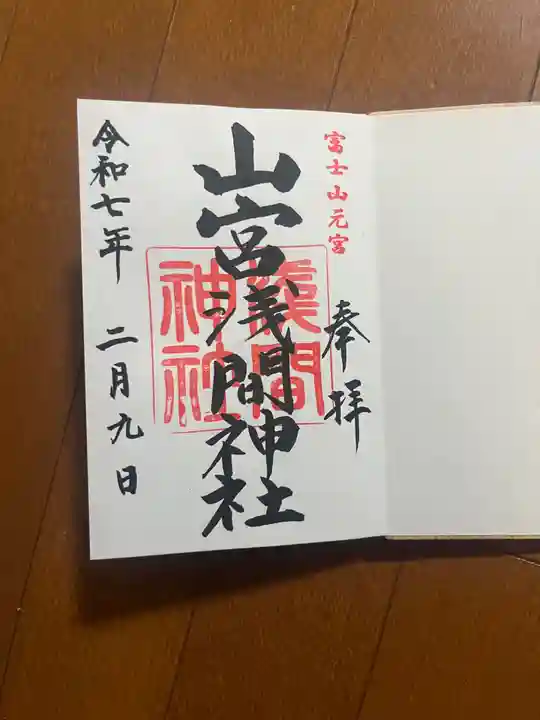 富士山元宮
奉拝
山宮浅間神社
浅間
神社
令和七年 二月九日